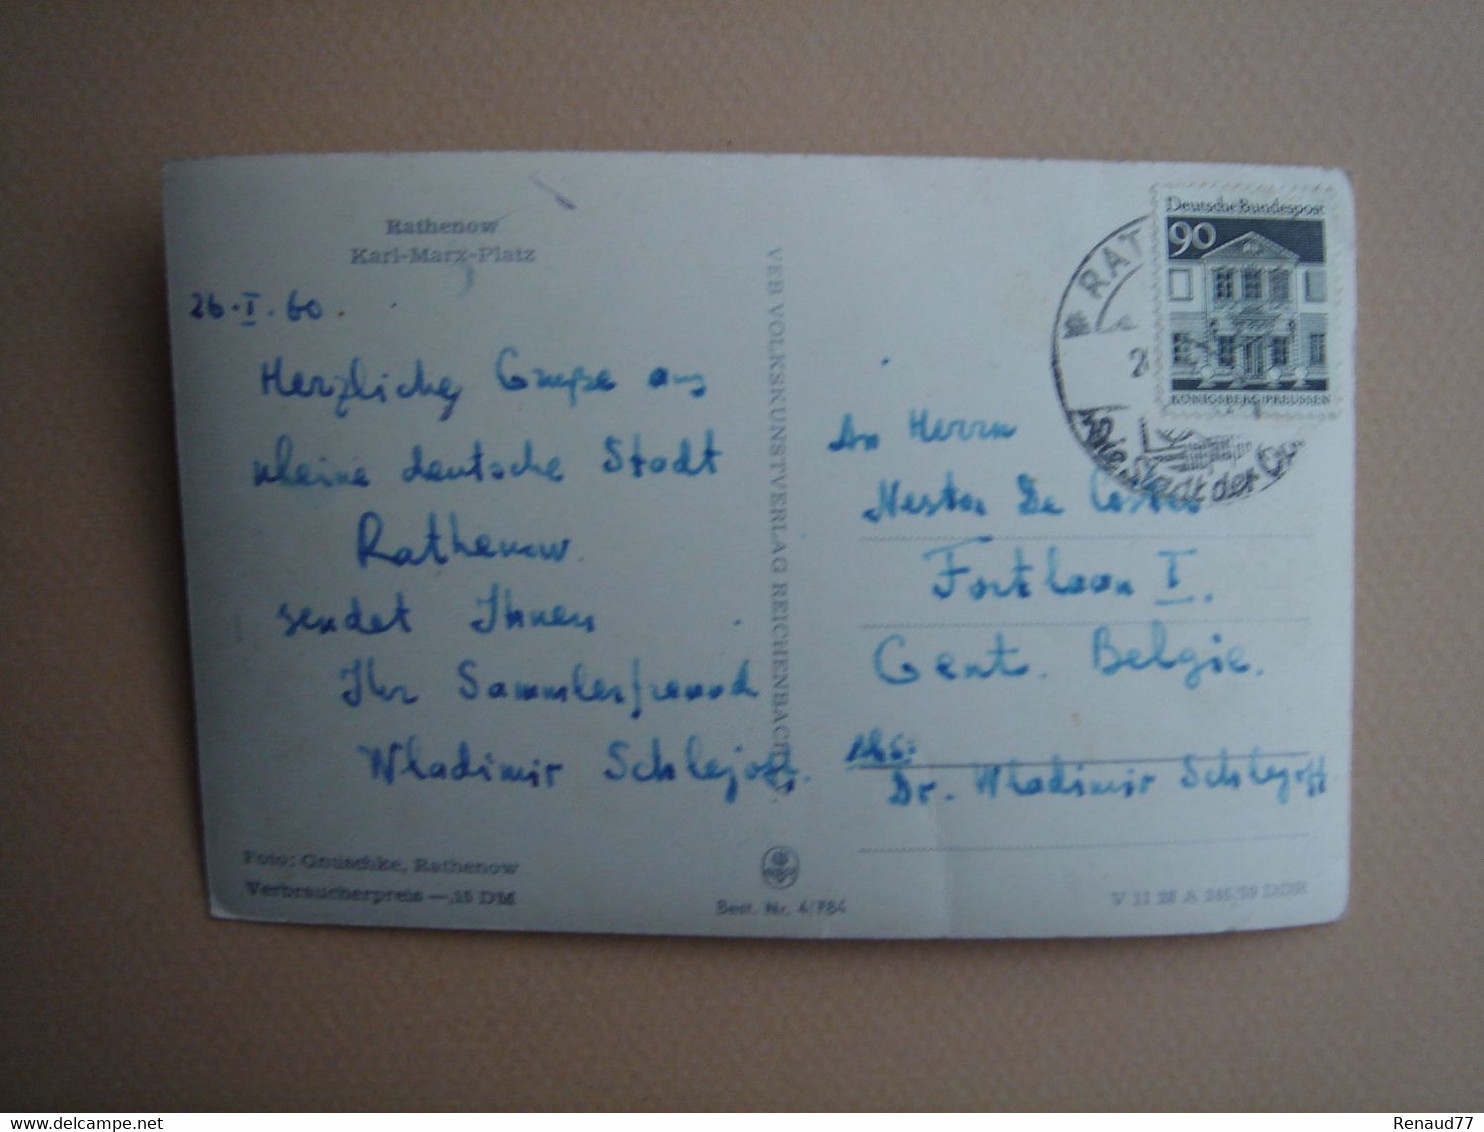 Rathenow
Karl-Marx-Platz
26.I.60.
Herzliche Grüße aus
kleine deutsche Stadt
Rathenow
sendet Ihnen
Ihr Sammlerfreund
Wladimir Schlejoff.
Foto: Gnuschke, Rathenow
Verbraucherpreis —,15 DM
VEB VOLKSKUNSTVERLAG REICHENBACH
Best. Nr. 4/784
Deutsche Bundespost
90
KÖNIGSBERG/PREUSSEN
RAT
2
Die Stadt der
An Herrn
Nestor De Coster
Fortlaan I.
Gent. Belgie.
Abs:
Dr. Wladimir Schlejoff
V 11 28 A DDR
Renaud77